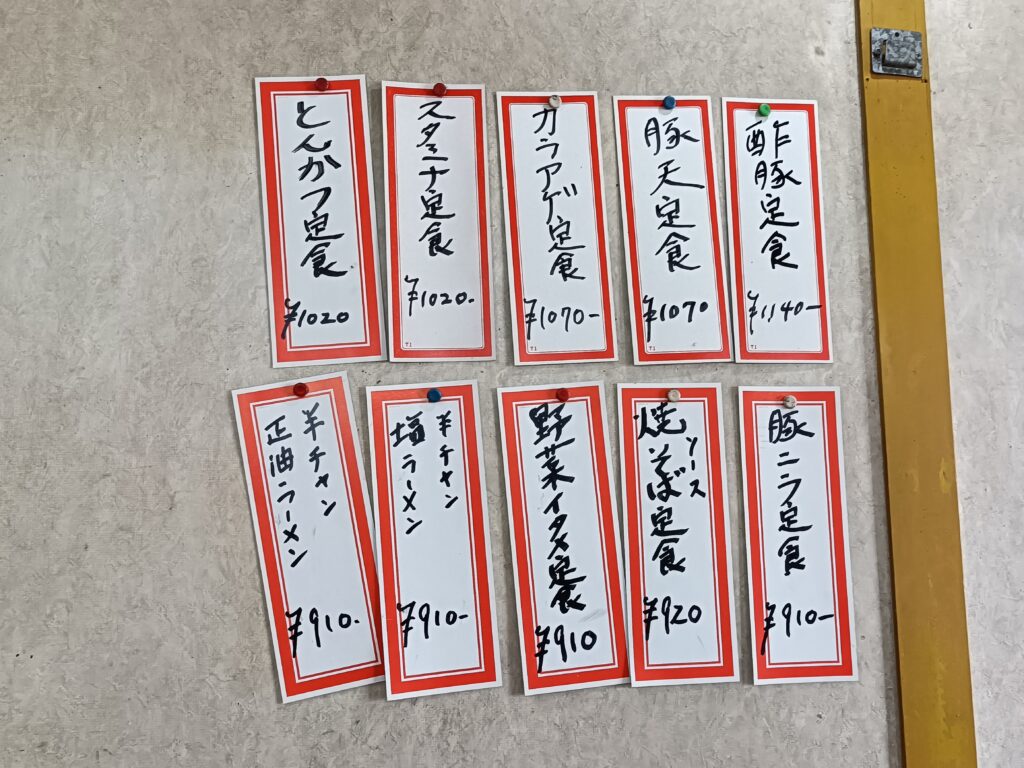 とんかつ定食
¥1020
スタミナ定食
¥1020-
カラアゲ定食
¥1070-
豚天定食
¥1070
酢豚定食
¥1140-
半チャン
正油ラーメン
¥910-
半チャン
塩ラーメン
¥910-
野菜イタメ定食
¥910
ソース
焼そば定食
¥920
豚ニラ定食
¥910-